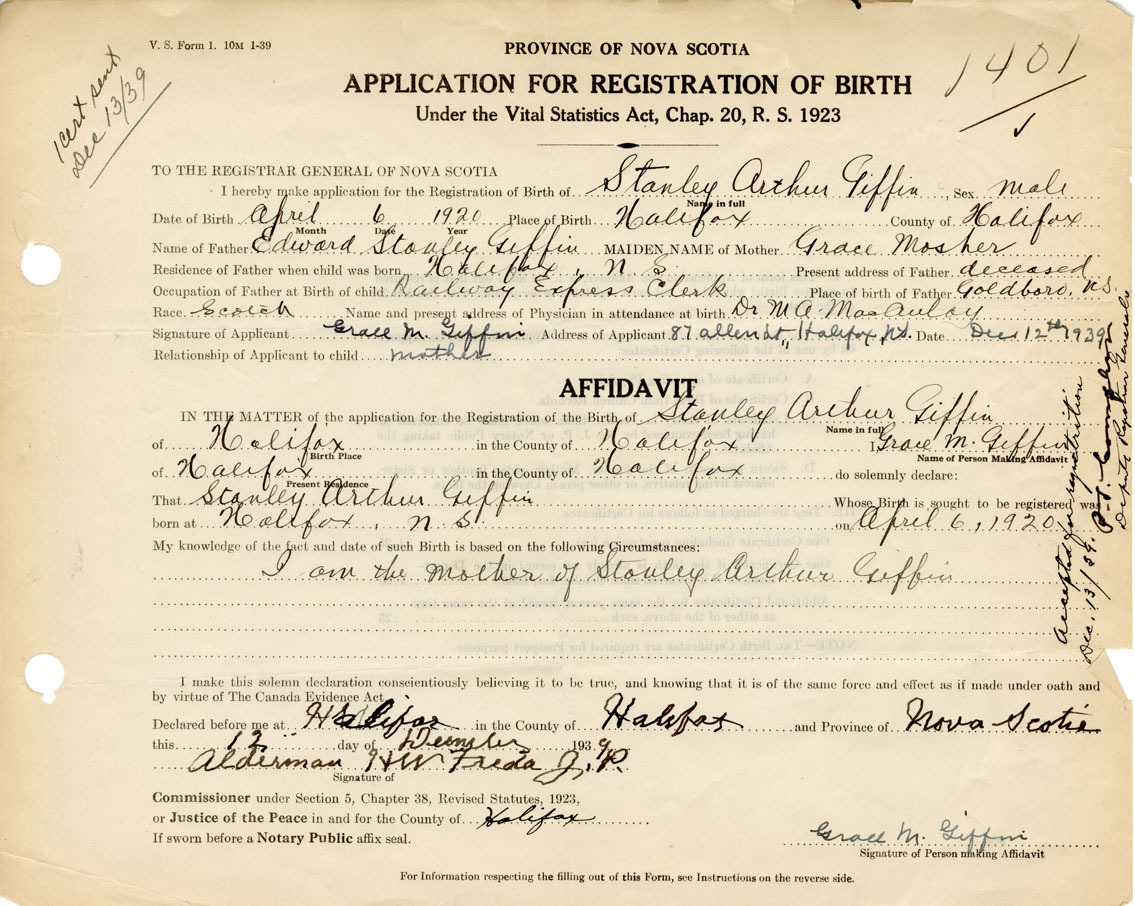 V. S. Form 1. 10M 1-39
1 cert sent
Dec 13/39
1401
PROVINCE OF NOVA SCOTIA
APPLICATION FOR REGISTRATION OF BIRTH
Under the Vital Statistics Act, Chap. 20, R. S. 1923
TO THE REGISTRAR GENERAL OF NOVA SCOTIA
I hereby make application for the Registration of Birth of Stanley Arthur Giffin, Sex male
Name in full
Date of Birth April 6 1920 Place of Birth Halifax County of Halifax
Month Date Year
Name of Father Edward Stanley Giffin MAIDEN NAME of Mother Grace Mosher
Residence of Father when child was born Halifax, N S Present address of Father deceased
Occupation of Father at Birth of child Railway Express Clerk Place of birth of Father Goldboro, N.S.
Race Scotch Name and present address of Physician in attendance at birth Dr M. A. MacAulay
Signature of Applicant Grace M. Giffin Address of Applicant 87 allen st., Halifax, N.S. Date Dec 12th 1939
Relationship of Applicant to child mother
AFFIDAVIT
IN THE MATTER of the application for the Registration of the Birth of Stanley Arthur Giffin
Name in full
of Halifax in the County of Halifax I, Grace M. Giffin
Birth Place Name of Person Making Affidavit
of Halifax in the County of Halifax do solemnly declare:
Present Residence
That Stanley Arthur Giffin Whose Birth is sought to be registered was
born at Halifax, N S. on April 6, 1920
My knowledge of the fact and date of such Birth is based on the following Circumstances:
I am the mother of Stanley Arthur Giffin
Accepted for registration
Dec. 13/39.
Deputy Registrar General
I make this solemn declaration conscientiously believing it to be true, and knowing that it is of the same force and effect as if made under oath and
by virtue of The Canada Evidence Act
Declared before me at Halifax in the County of Halifax and Province of Nova Scotia
this 12 day of December 1939
Alderman HW Freda J. P.
Signature of
Commissioner under Section 5, Chapter 38, Revised Statutes, 1923,
or Justice of the Peace in and for the County of Halifax
If sworn before a Notary Public affix seal.
Grace M. Giffin
Signature of Person making Affidavit
For Information respecting the filling out of this Form, see Instructions on the reverse side.